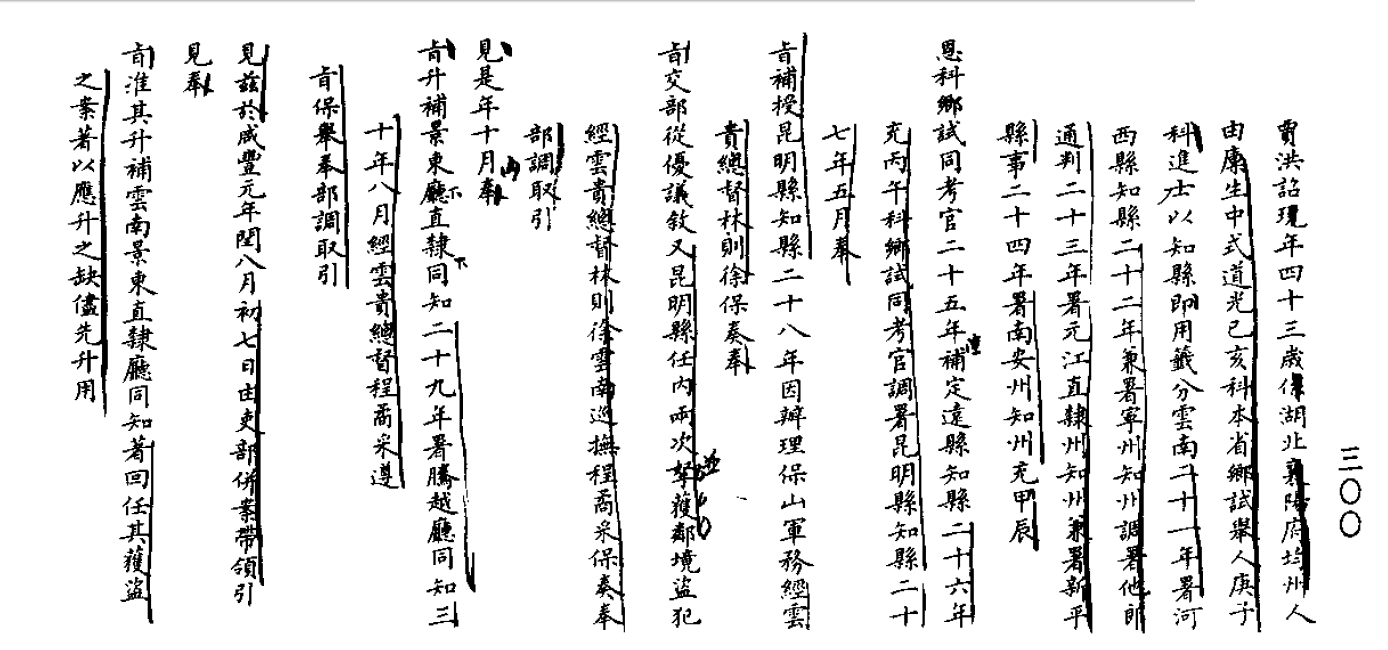 三〇〇
賈洪詔現年四十三歲係湖北襄陽府均州人
由廩生中式道光己亥科本省鄉試舉人庚子
科進士以知縣即用籤分雲南二十一年署河
西縣知縣二十二年兼署寧州知州調署他郎
通判二十三年署元江直隸州知州兼署新平
縣事二十四年署南安州知州充甲辰
恩科鄉試同考官二十五年補定遠縣知縣二十六年
充丙午科鄉試同考官調署昆明縣知縣二十
七年五月奉
旨補授昆明縣知縣二十八年因辦理保山軍務經雲
貴總督林則徐保奏奉
旨交部從優議敘又昆明縣任內兩次拏獲鄰境盜犯
經雲貴總督林則徐雲南巡撫程矞采保奏奉
部調取引
見是年十月奉
旨升補景東廳直隸同知二十九年署騰越廳同知三
十年八月經雲貴總督程矞采遵
旨保舉奉部調取引
見茲於咸豐元年閏八月初七日由吏部併案帶領引
見奉
旨准其升補雲南景東直隸廳同知著回任其獲盜
之案著以應升之缺儘先升用